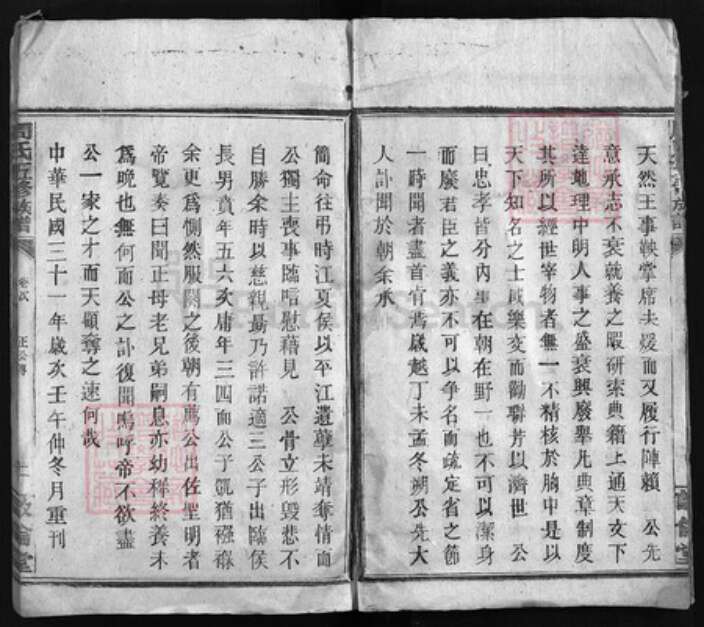 天然王事鞅掌席未煖而又履行陣賴　公先
意承志不衰就養之暇研索典籍上通天文下
達地理中明人事之盛衰興廢舉凡典章制度
其所以經世宰物者無一不精核於胸中是以
天下知名之士咸樂交而勸聯芳以濟世　公
曰忠孝皆分內事在朝在野一也不可以潔身
而廢君臣之義亦不可以爭名而疏定省之節
一時聞者盡首肯焉歲越丁未孟冬朔公先大
人訃聞於朝余承
簡命往弔時江夏侯以平江遺孽未靖奪情而
公獨主喪事臨唁慰藉見　公骨立形毀想不
自勝余時以慈親勗乃許諾適三公子出臨侯
長男賁年五六次庸年三四而公子煎猶襁褓
余更為惻然服闋之後朝有薦公出佐聖明者
帝覽奏曰聞正母老兄弟嗣息亦幼稚終養未
為晚也無何而公之訃復聞嗚呼帝不欲盡
公一家之才而天顧奪之速何哉
中華民國三十一年歲次壬午仲冬月重刊
周氏五修族譜
正公傳
敦倫堂